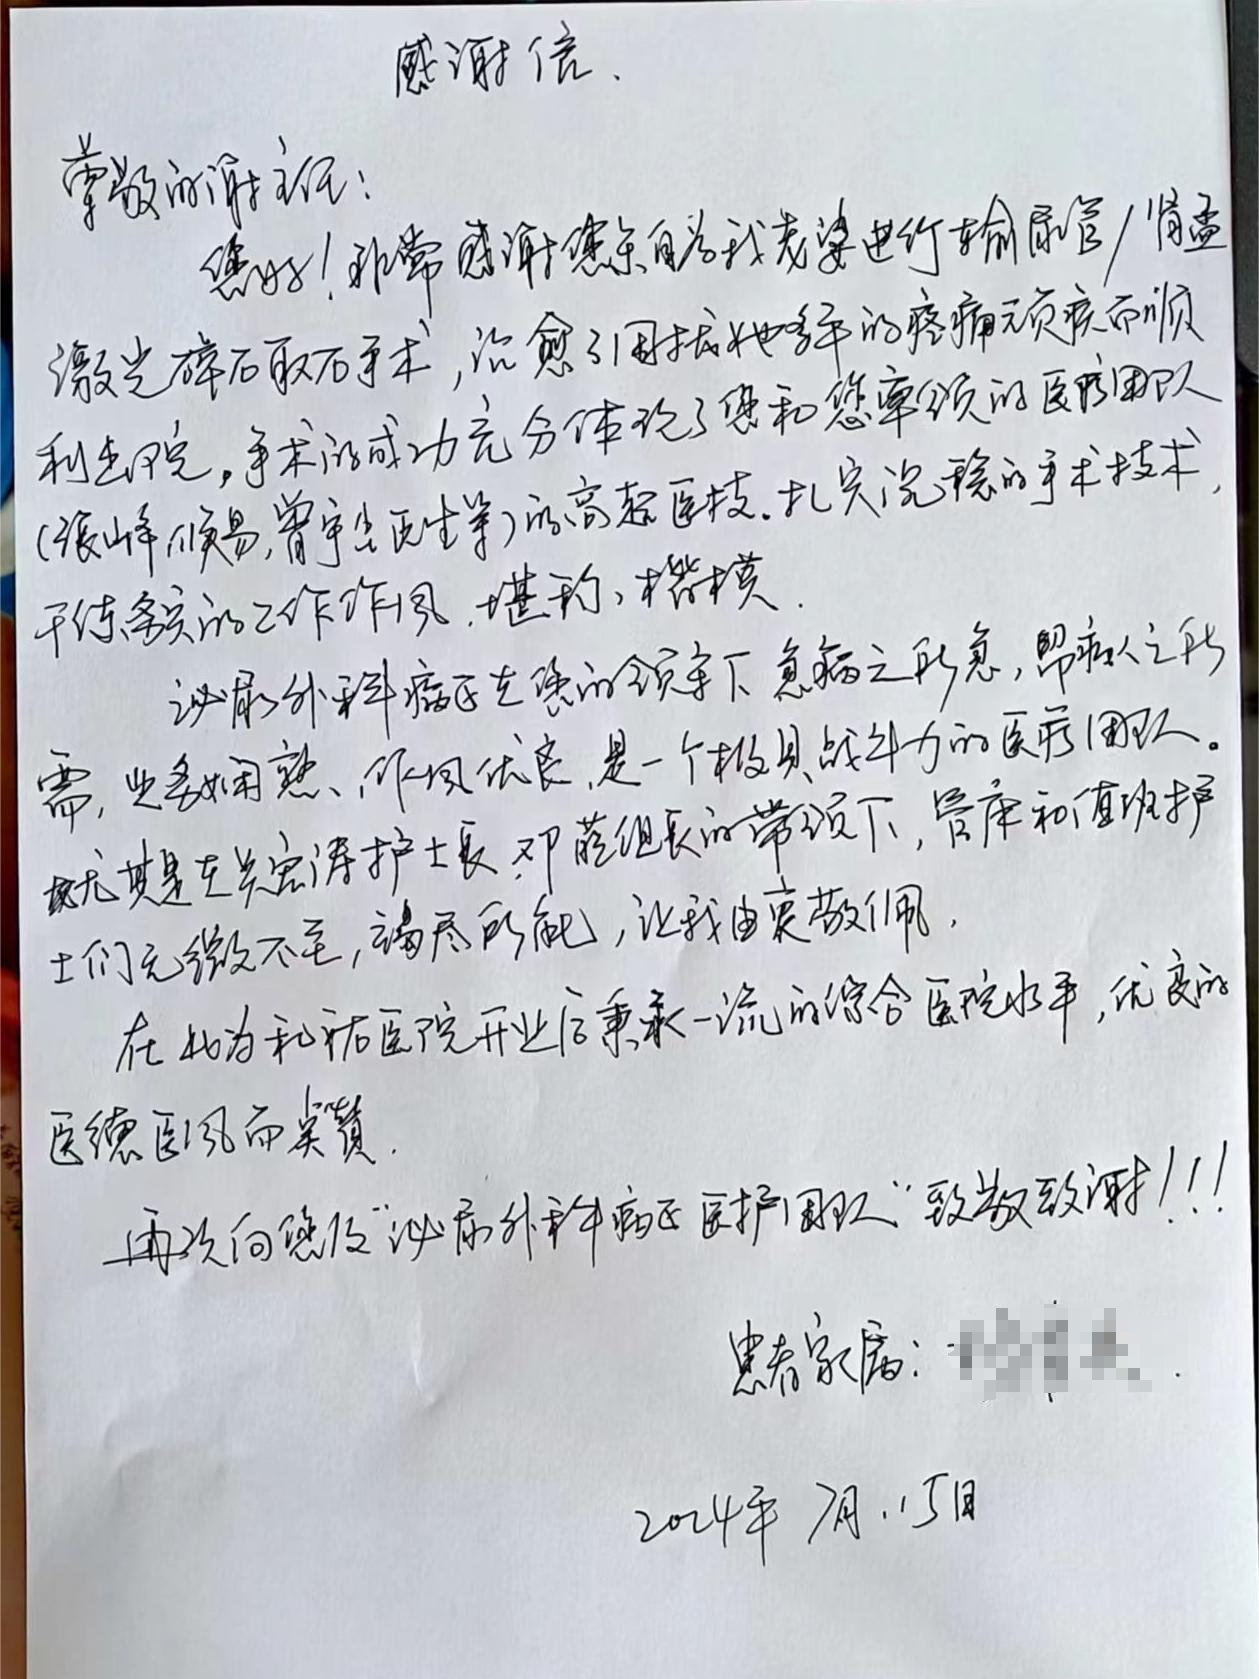 感谢信、
尊敬的谢主任：
您好！非常感谢您亲自为我老婆进行输尿管/肾盂
激光碎石取石手术，治愈了困扰她多年的疼痛顽疾而顺
利出院。手术的成功充分体现了您和您率领的医疗团队
(张峰、顺易，曾宇 医生等)的高超医技。扎实沉稳的手术技术，
干练务实的工作作风、堪称、楷模.
泌尿外科病区在您的领导下急病之所急，帮病人之所
需，业务娴熟、作风优良、是一个极具战斗力的医疗团队。
尤其是在 护士长、邓 组长的带领下，管床和值班护
士们无微不至，竭尽所能，让我由衷敬佩.
在此为和祐医院开业后秉承一流的综合医院水平，优良的
医德医风而点赞.
再次向您及“泌尿外科病区医护团队”致敬致谢！！！
患者家属：
2024年7月.15日